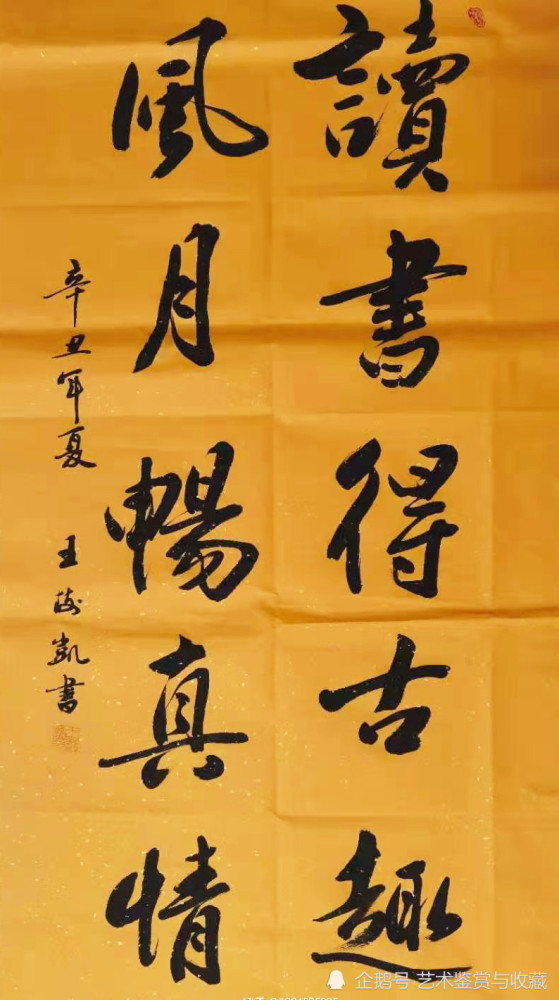 讀書得古趣
風月暢真情
辛丑年夏
王海凱書
企鹅号 艺术鉴赏与收藏